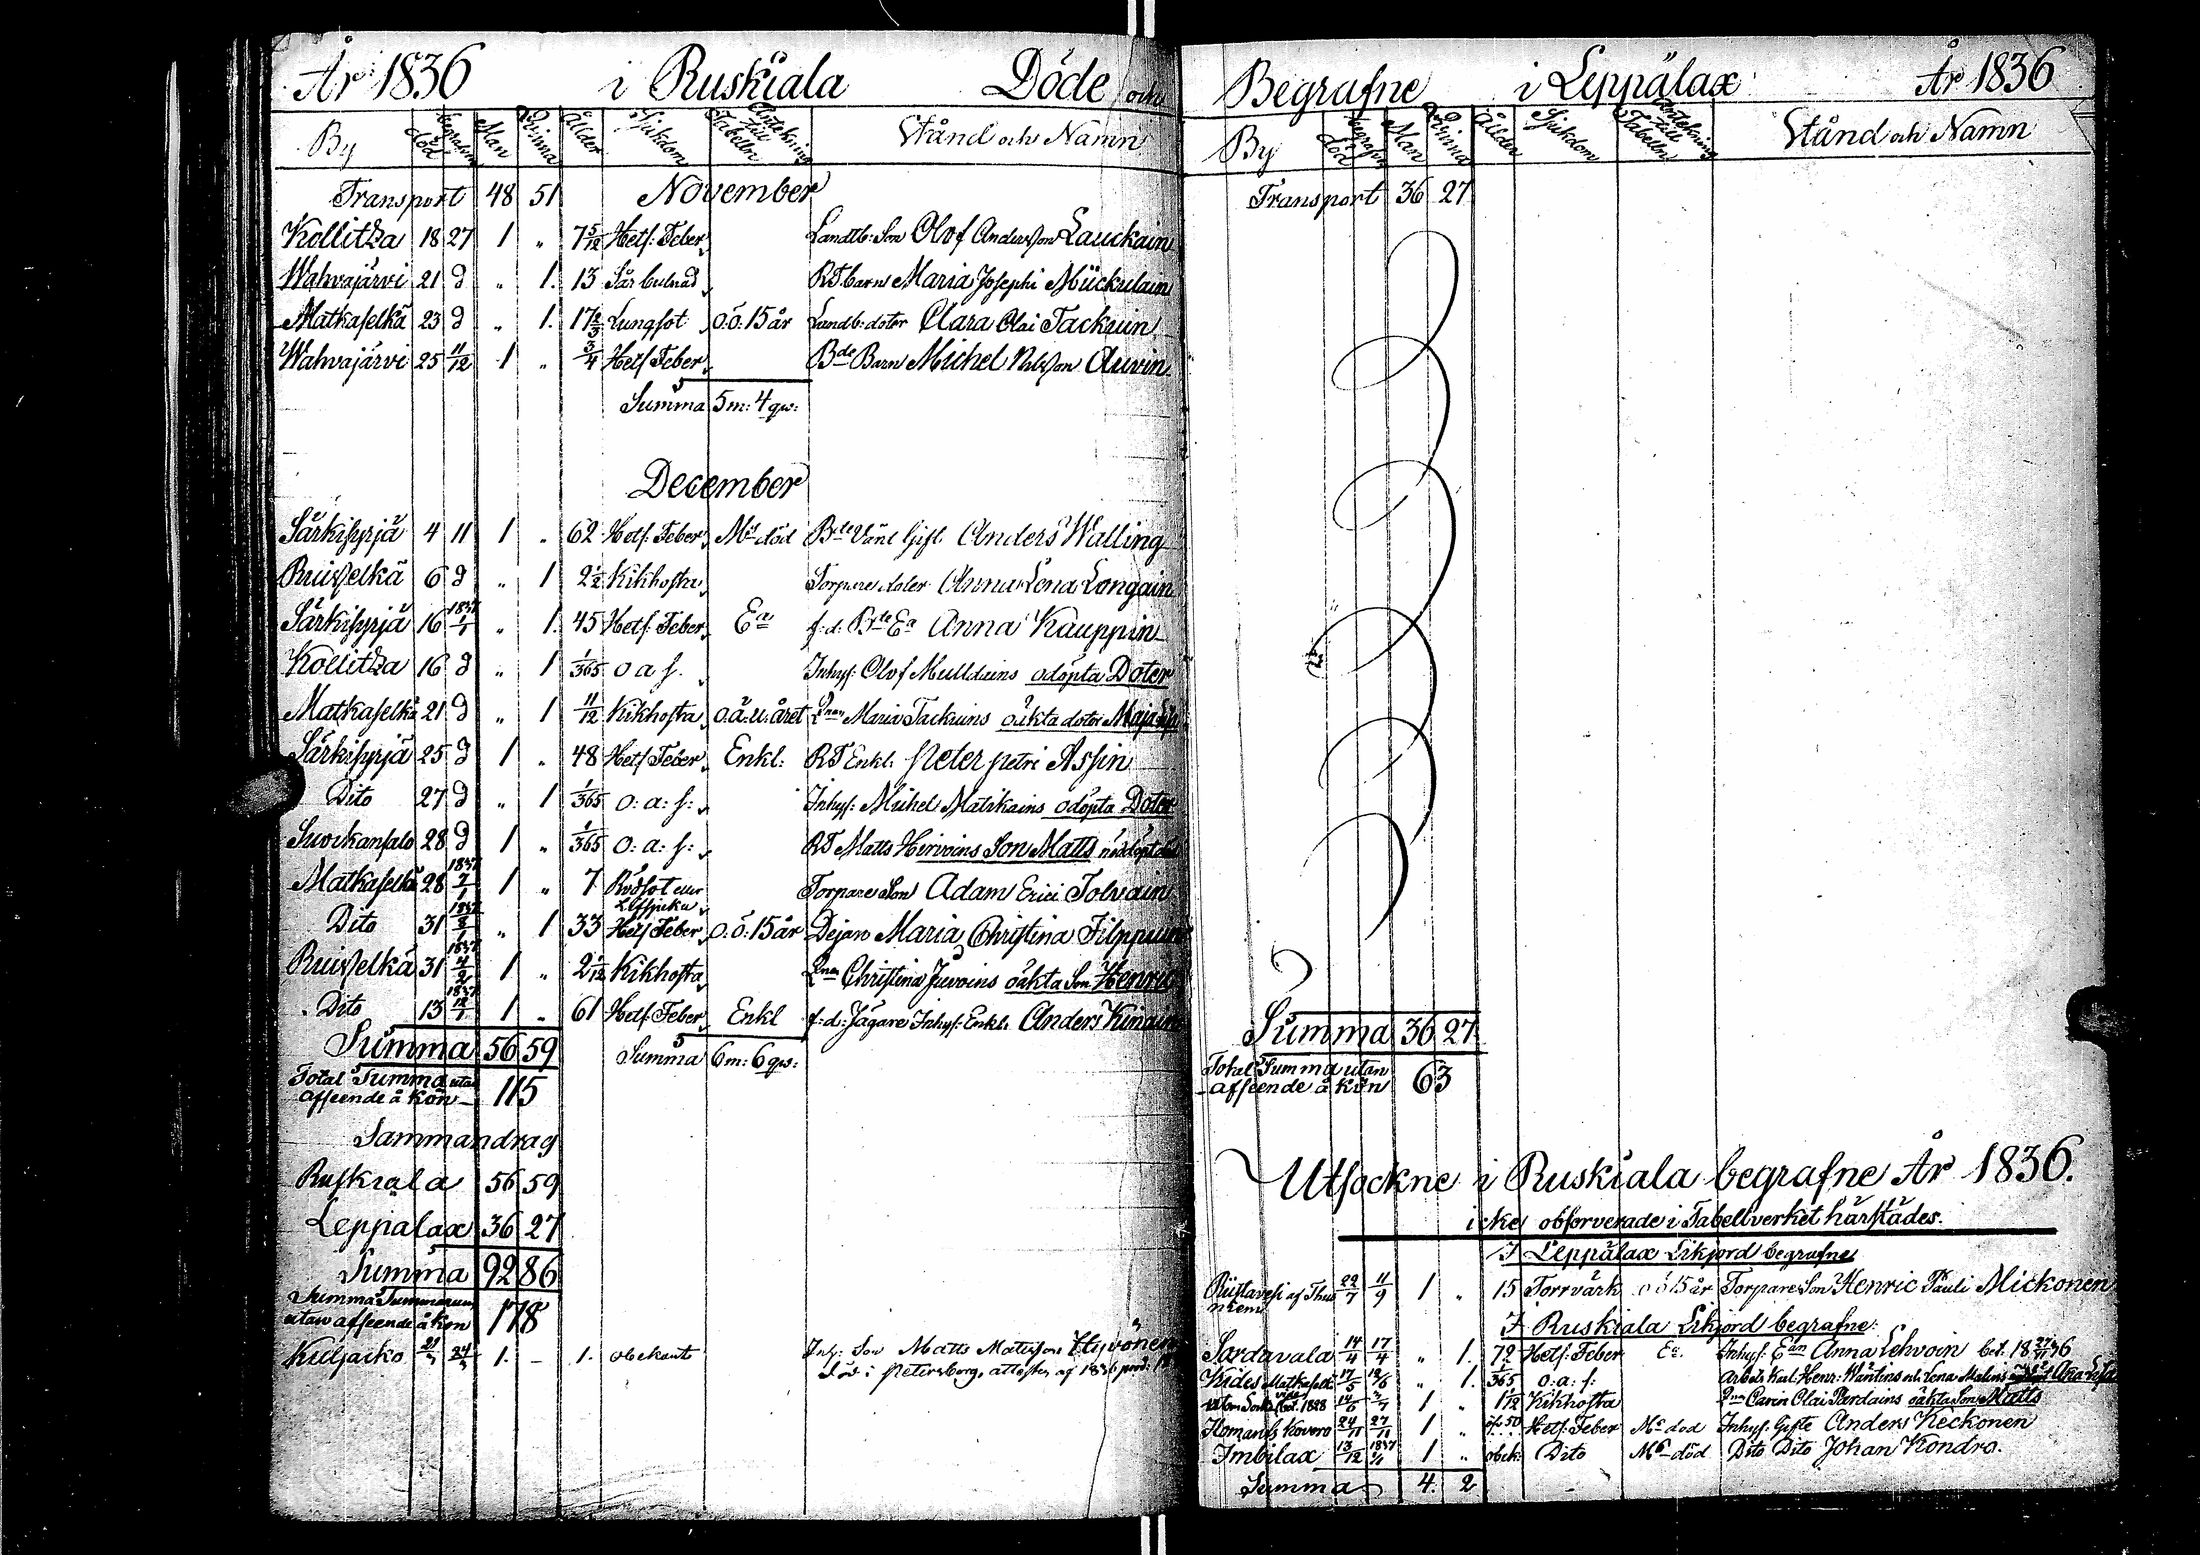 År 1836 i Ruskiala Döde och
By död begrafn Man Qvinna Ålder Sjukdom Antekning till Tabellen Stånd och Namn
Transport 48 51 November
Kollitza 18 27 1 " 7 5/12 Hets: Feber Landtb: Son Olof Andersson Lauckain
Wahvajärvi 21 d " 1. 13 Sår bulnad RT barn Maria Josephi Mückulain
Matkaselkä 23 d " 1. 17 2/3 Lungsot o.ö. 15 år Landb: doter Clara Olai Tackuin
Wahvajärvi 25 11/12 1 " 3/4 Hets Feber Bde Barn Michel Nilsson Auvin
Summa 5 m: 4 qw:
December
Särkisyrjä 4 11 1 " 62 Hets: Feber Mn död Bde Gift Anders Walling
Ruisselkä 6 d " 1 2 1/2 Kikhosta Torpare doter Anna Lena Longain
Särkisyrjä 16 1837 " 1. 45 Hets: Feber Ea f: d: Bde Ea Anna Kauppin
Kollitza 16 d " 1 1/365 o a s. Inhys: Olof Mulldains odöpta Doter
Matkaselkä 21 d " 1 11/12 Kikhosta o.ä.u. året Qnan Maria Tackuins oäkta doter Maja
Särkisyrjä 25 d 1 " 48 Hets Feber Enkl: RT Enkl. Peter Petri Assin
Dito 27 d " 1 1/365 o: a: s: Inhys: Michel Matikains odöpta Doter
Suorkansalo 28 d 1 " 1/365 o: a: s: RT Matts Hirvoins Son Matts nöddöpt
Matkaselkä 28 1837 7/1 1 " 7 Rödsot Torpare Son Adam Erici Tolvain
Dito 31 1837 8/1 " 1 33 Hets Feber o. ö. 15 år Dejan Maria Christina Filppuin
Ruisselkä 31 1837 4/2 1 " 2 1/12 Kikhosta Qnan Christina Juvoins oäkta Son Henric
Dito 13 1837 1 " 61 Hets: Feber Enkl f: d: Jägare Inhys: Enkl. Anders Kinain
Summa 56 59 Summa 6 m: 6 qw:
Total Summa utan
afseende å kön 115
Sammandrag
Ruskiala 56 59
Leppälax 36 27
Summa 92 86
Summa Summarum
utan afseende å kön 178
Kuljaiko 1. – 1. obekant Inh: Son Matts Matsson Hyvönen
död i Petersborg, attest af 1836
Begrafne i Leppälax År 1836
By död begrafn Man Qvinna Ålder Sjukdom Antekning till Tabellen Stånd och Namn
Transport 36 27
Summa 36 27
Total Summa utan
afseende å kön 63
Utsockne i Ruskiala begrafne År 1836.
icke observerade i Tabellverket härstädes.
I Leppälax Likjord begrafne
Rustavesi af 22/7 11/9 1 " 15 Torrvärk o ö 15 år Torpare Son Henric Pauli Mickonen
I Ruskiala Likjord begrafne:
Sordavala 14/4 17/4 " 1. 72 Hets: Feber Ea. Inhys: Ean Anna Lehvoin
Kides Matkaselkä 17/5 12/6 " 1. 1/365 o: a: s: Arbets Karl Henr: Wäntins Lena Malins
1828 1 " 1 1/12 Kikhosta Qnan Carin Olai Pardains oäkta Son Matts
Ilomants Kovero 24/11 27/11 1 " öf. 50 Hets: Feber Mn död Inhys: Gifte Anders Keckonen
Imbilax 13/12 1837 1 " obek: Dito Mn död Dito Dito Johan Kondro.
Summa 4. 2